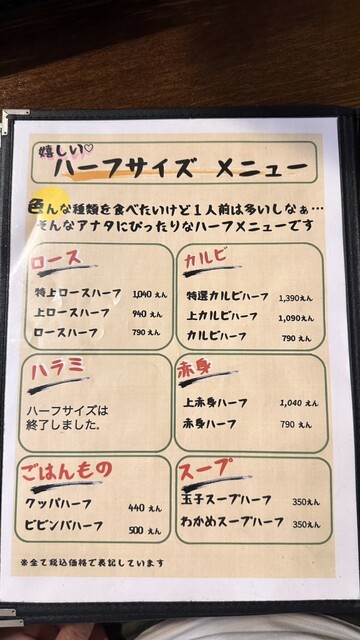 嬉しい♡
ハーフサイズ メニュー
色んな種類を食べたいけど1人前は多いしなぁ…
そんなアナタにぴったりなハーフメニューです
ロース
特上ロースハーフ 1,040えん
上ロースハーフ 940えん
ロースハーフ 790えん
カルビ
特選カルビハーフ 1,390えん
上カルビハーフ 1,090えん
カルビハーフ 790えん
ハラミ
ハーフサイズは
終了しました。
赤身
上赤身ハーフ 1,040えん
赤身ハーフ 790えん
ごはんもの
クッパハーフ 440えん
ビビンバハーフ 500えん
スープ
玉子スープハーフ 350えん
わかめスープハーフ 350えん
※全て税込価格で表記しています